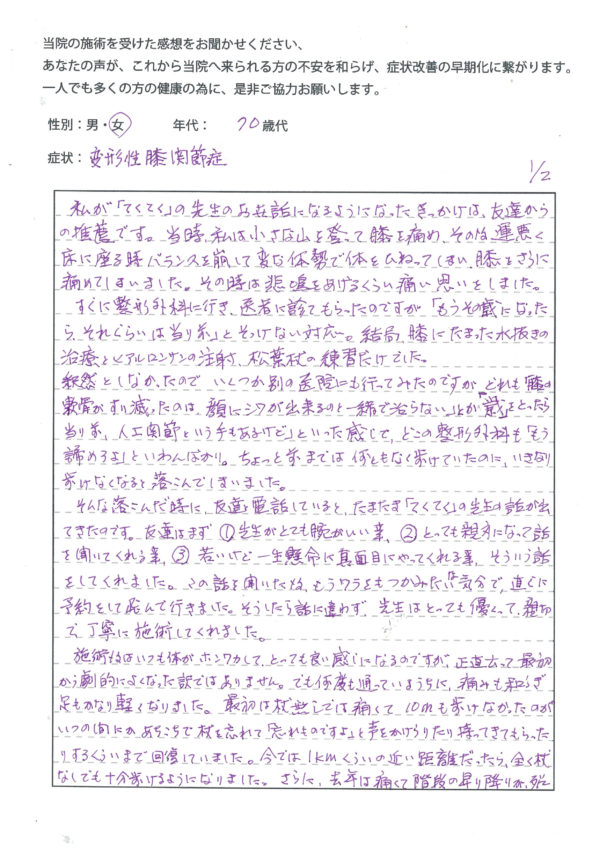 当院の施術を受けた感想をお聞かせください、
あなたの声が、これから当院へ来られる方の不安を和らげ、症状改善の早期化に繋がります。
一人でも多くの方の健康の為に、是非ご協力お願いします。
性別：男・女　年代：70歳代
症状：変形性膝関節症
1/2
私が「てくてく」の先生のお世話になるようになったきっかけは、友達から
の推薦です。当時、私は小さな山を登って膝を痛め、その後、運悪く
床に座る時バランスを崩して変な体勢で体をひねってしまい、膝をさらに
痛めてしまいました。その時は悲鳴をあげるくらい痛い思いをしました。
すぐに整形外科に行き、医者に診てもらったのですが「もうその歳になった
ら、それぐらいは当り前」とそっけない対応…。結局、膝にたまった水抜きの
治療とヒアルロンサンの注射、松葉杖の練習だけでした。
釈然としなかったので いくつか別の医院にも行ってみたのですが、どれも「膝の
軟骨がすり減ったのは、顔にシワが出来るのと一緒で治らない」とか「歳をとったら
当り前、人工関節という手もあるけど」といった感じで、どこの整形外科も「もう
諦めろよ」といわんばかり。ちょっと前までは何ともなく歩けていたのに、いきなり
歩けなくなると落こんでしまいました。
そんな落こんだ時に、友達と電話していると、たまたま「てくてく」の先生の話が出
てきたのです。友達はまず ①先生がとても腕がいい事、②とっても親身になって話
を聞いてくれる事、③若いけど一生懸命に真面目にやってくれる事、そういう話
をしてくれました。この話を聞いた後、もうワラをもつかみたい気分で、直ぐに
予約をして飛んで行きました。そうしたら話に違わず、先生はとっても優しくって、親切
で、丁寧に施術してくれました。
施術後はいつも体がホンワカして、とっても良い感じになるのですが、正直言って最初
から劇的によくなった訳ではありません。でも何度も通っていううちに、痛みも和らぎ
足もかなり軽くなりました。最初は杖無しでは痛くて 10mも歩けなかったのが
いつの間にか、あちこちで杖を忘れて「忘れものですよ」と声をかけられたり、持ってきてもらった
りするくらいまで回復していました。今では1kmくらいの近い距離だったら、全く杖
なしでも十分歩けるようになりました。さらに、去年は痛くて階段の昇り降りが